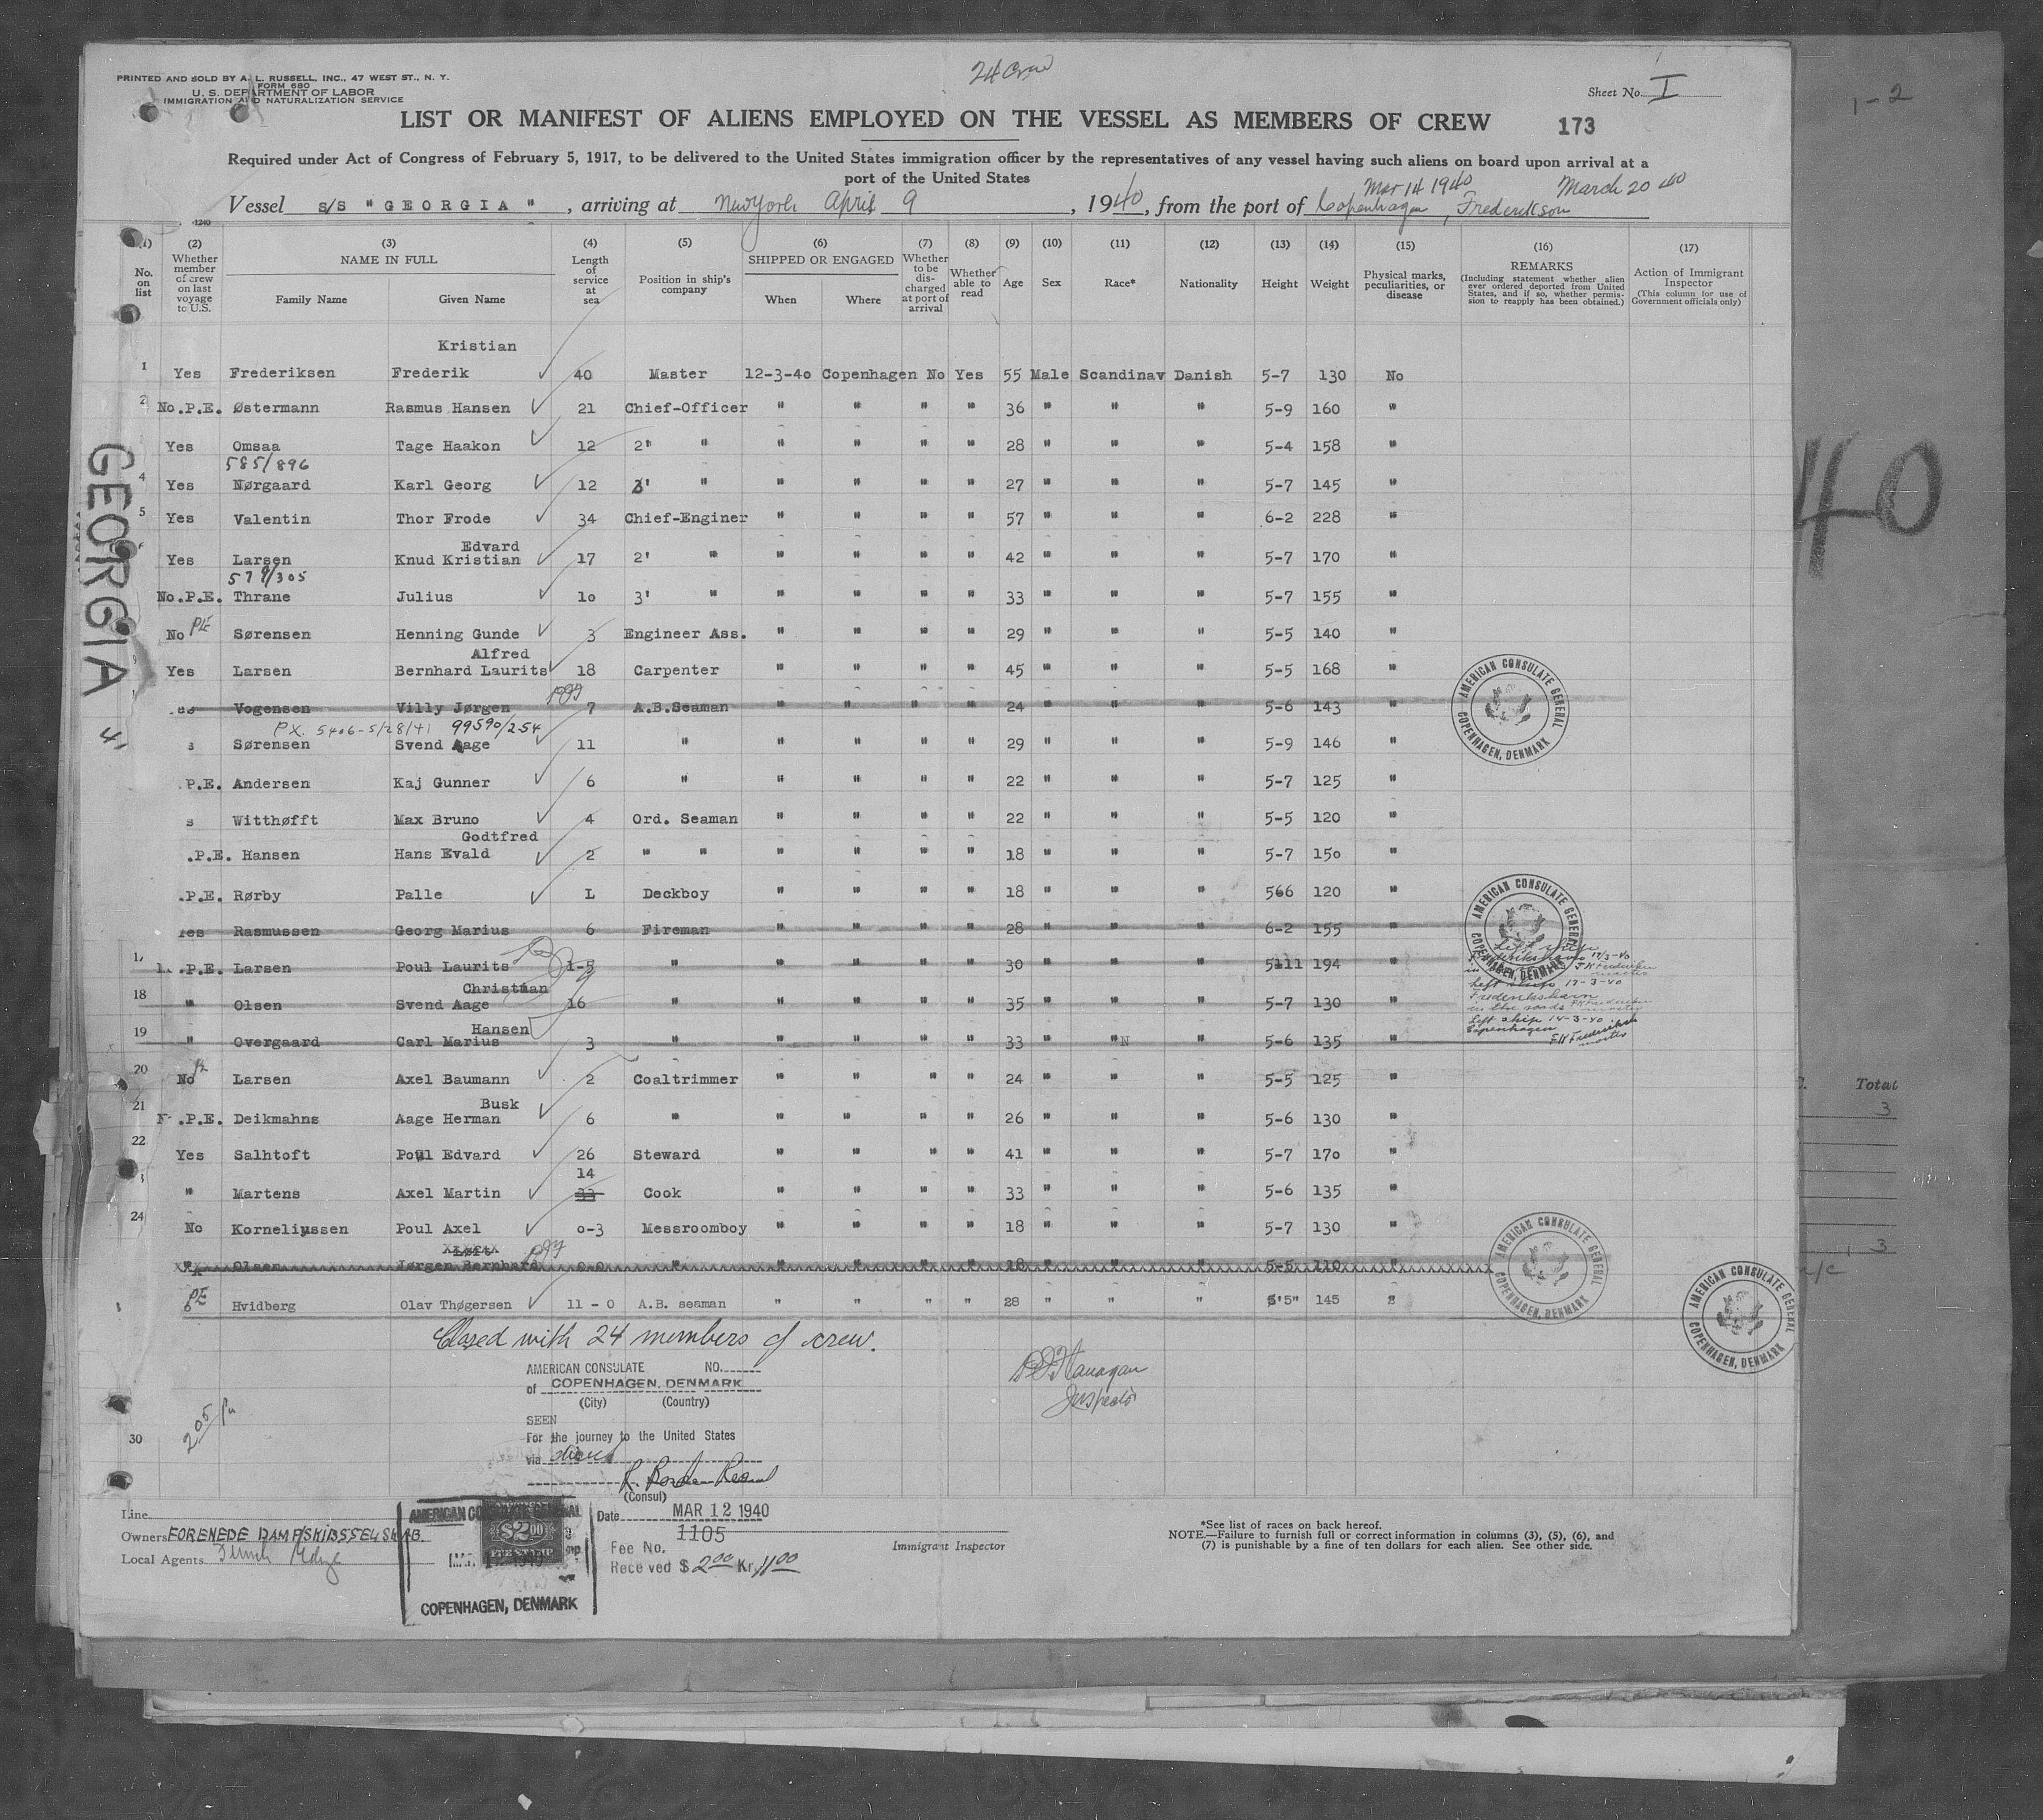 24 Crew
PRINTED AND SOLD BY A. L. RUSSELL, INC., 47 WEST ST., N. Y.
FORM 680
U. S. DEPARTMENT OF LABOR
IMMIGRATION AND NATURALIZATION SERVICE
Sheet No. I
1-2
LIST OR MANIFEST OF ALIENS EMPLOYED ON THE VESSEL AS MEMBERS OF CREW 173
Required under Act of Congress of February 5, 1917, to be delivered to the United States immigration officer by the representatives of any vessel having such aliens on board upon arrival at a
port of the United States
Mar 14 1940 March 20 40
Vessel S/S "GEORGIA", arriving at New York April 9, 1940, from the port of Copenhagen, Frederikson
1240
(1) (2) (3) (4) (5) (6) (7) (8) (9) (10) (11) (12) (13) (14) (15) (16) (17)
No. on list
Whether member of crew on last voyage to U.S.
NAME IN FULL
Family Name Given Name
Length of service at sea
Position in ship's company
SHIPPED OR ENGAGED
When Where
Whether to be discharged at port of arrival
Whether able to read
Age Sex Race* Nationality Height Weight
Physical marks, peculiarities, or disease
REMARKS
(Including statement whether alien ever ordered deported from United States, and if so, whether permission to reapply has been obtained.)
Action of Immigrant Inspector
(This column for use of Government officials only)
Kristian
1 Yes Frederiksen Frederik 40 Master 12-3-40 Copenhagen No Yes 55 Male Scandinav Danish 5-7 130 No
2 No.P.E. Østermann Rasmus Hansen 21 Chief-Officer " " " " 36 " " " 5-9 160 "
Yes Omsaa Tage Haakon 12 2' " " " " " 28 " " " 5-4 158 "
585/896
4 Yes Nørgaard Karl Georg 12 3' " " " " " 27 " " " 5-7 145 "
5 Yes Valentin Thor Frode 34 Chief-Enginer " " " " 57 " " " 6-2 228 "
Edvard
Yes Larsen Knud Kristian 17 2' " " " " " 42 " " " 5-7 170 "
579/305
No.P.E. Thrane Julius 10 3' " " " " " 33 " " " 5-7 155 "
No PE Sørensen Henning Gunde 3 Engineer Ass. " " " " 29 " " " 5-5 140 "
Alfred
Yes Larsen Bernhard Laurits 18 Carpenter " " " " 45 " " " 5-5 168 "
es Vogensen Villy Jørgen 7 A.B.Seaman " " " " 24 " " " 5-6 143 "
PX. 5406-5/28/41 99590/254
s Sørensen Svend Aage 11 " " " " " 29 " " " 5-9 146 "
P.E. Andersen Kaj Gunner 6 " " " " " 22 " " " 5-7 125 "
s Witthøfft Max Bruno 4 Ord. Seaman " " " " 22 " " " 5-5 120 "
Godtfred
.P.E. Hansen Hans Evald 2 " " " " " " 18 " " " 5-7 150 "
.P.E. Rørby Palle L Deckboy " " " " 18 " " " 566 120 "
Yes Rasmussen Georg Marius 6 Fireman " " " " 28 " " " 6-2 155 "
.P.E. Larsen Poul Laurits 1-5 " " " " " 30 " " " 5111 194 "
Left ship 17/3-40
Christian
18 " Olsen Svend Aage 16 " " " " " 35 " " " 5-7 130 "
Left ship 17-3-40
Frederikshavn
Hansen
19 " Overgaard Carl Marius 3 " " " " " 33 " " " 5-6 135 "
Left ship 14-3-40
Copenhagen
F.K Frederiksen
master
20 No Larsen Axel Baumann 2 Coaltrimmer " " " " 24 " " " 5-5 125 "
Busk
21 .P.E. Deikmahns Aage Herman 6 " " " " " 26 " " " 5-6 130 "
22 Yes Salhtoft Poul Edvard 26 Steward " " " " 41 " " " 5-7 170 "
14
" Martens Axel Martin 33 Cook " " " " 33 " " " 5-6 135 "
24 No Korneliussen Poul Axel 0-3 Messroomboy " " " " 18 " " " 5-7 130 "
Olsen Jørgen Bernhard 0-0 " " " " " 18 " " " 5-6 110 "
PE
6 Hvidberg Olav Thøgersen 11 - 0 A.B. seaman " " " " 28 " " " 5'5" 145 "
Closed with 24 members of crew.
AMERICAN CONSULATE NO.
of COPENHAGEN, DENMARK
(City) (Country)
SEEN
For the journey to the United States
via direct
(Consul)
Flanagan
Inspector
205
30
Date MAR 12 1940
Fee No. 1105
Received $ 2.00 Kr. 11.00
Line
Owners FORENEDE DAMPSKIBSSELSKAB.
Local Agents
AMERICAN CONSULATE GENERAL
$2.00
FEE STAMP
COPENHAGEN, DENMARK
Immigrant Inspector
*See list of races on back hereof.
NOTE.—Failure to furnish full or correct information in columns (3), (5), (6), and
(7) is punishable by a fine of ten dollars for each alien. See other side.
AMERICAN CONSULATE GENERAL COPENHAGEN, DENMARK
AMERICAN CONSULATE GENERAL COPENHAGEN, DENMARK
AMERICAN CONSULATE GENERAL COPENHAGEN, DENMARK
AMERICAN CONSULATE GENERAL COPENHAGEN, DENMARK
GEORGIA
40
Total
3
3